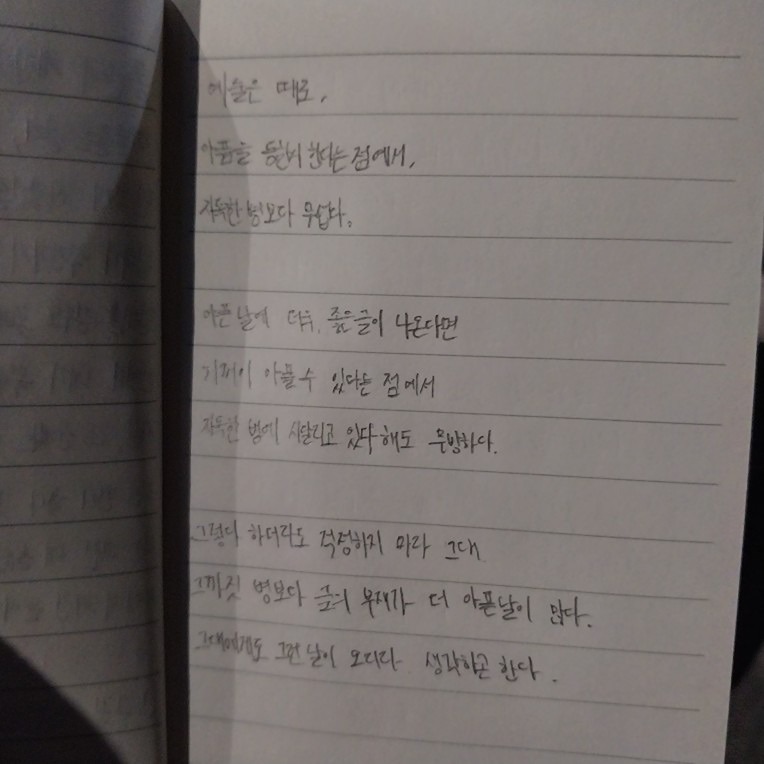 예술은 때로,
아픔을 동반한다는 점에서,
지독한 병보다 무섭다.
아픈 날에 더욱 좋은 글이 나온다면
기꺼이 아플 수 있다는 점에서
지독한 병에 시달리고 있다 해도 무방하다.
그렇다 하더라도 걱정하지 마라 그대
그까짓 병보다 글의 부재가 더 아픈 날이 많다.
그대에게도 그런 날이 오리라 생각하곤 한다.